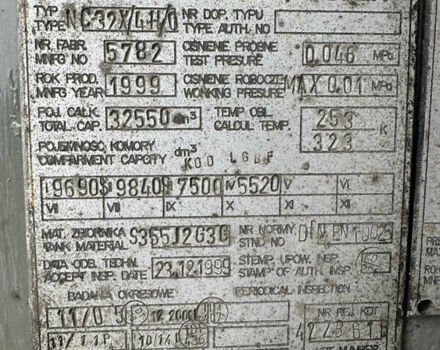 TYP NC-32X/4H/0 NR DOP. TYPU
TYPE TYPE AUTH. NO
NR FABR. 5782 CIŚNIENIE PRÓBNE 0.046 MPa
MNFG NO TEST PRESURE
ROK PROD. 1999 CIŚNIENIE ROBOCZE MAX 0.01 MPa
MNFG YEAR WORKING PRESURE
POJ. CAŁK. 32550 dm³ TEMP. OBL. 253 K
TOTAL. CAP. CALCUL. TEMP. 323
POJEMNOŚĆ KOMORY dm³ KOD LGBF
COMPARTMENT CAPCITY
I 9690 II 9840 III 7500 IV 5520 V VI
VII VIII IX X XI
MAT. ZBIORNIKA S355J2G3C NR NORMY DIN EN 10025
TANK MATERIAL STND NO
DATA ODB. TECHN. 23.12.1999 STEMP. UPOW. INSP.
ACCEPT INSP. DATE STAMP OF AUTH. INSP.
BADANIA OKRESOWE PERIODICAL INSPECTION
11/05 12.2000 NR REJ. KDT